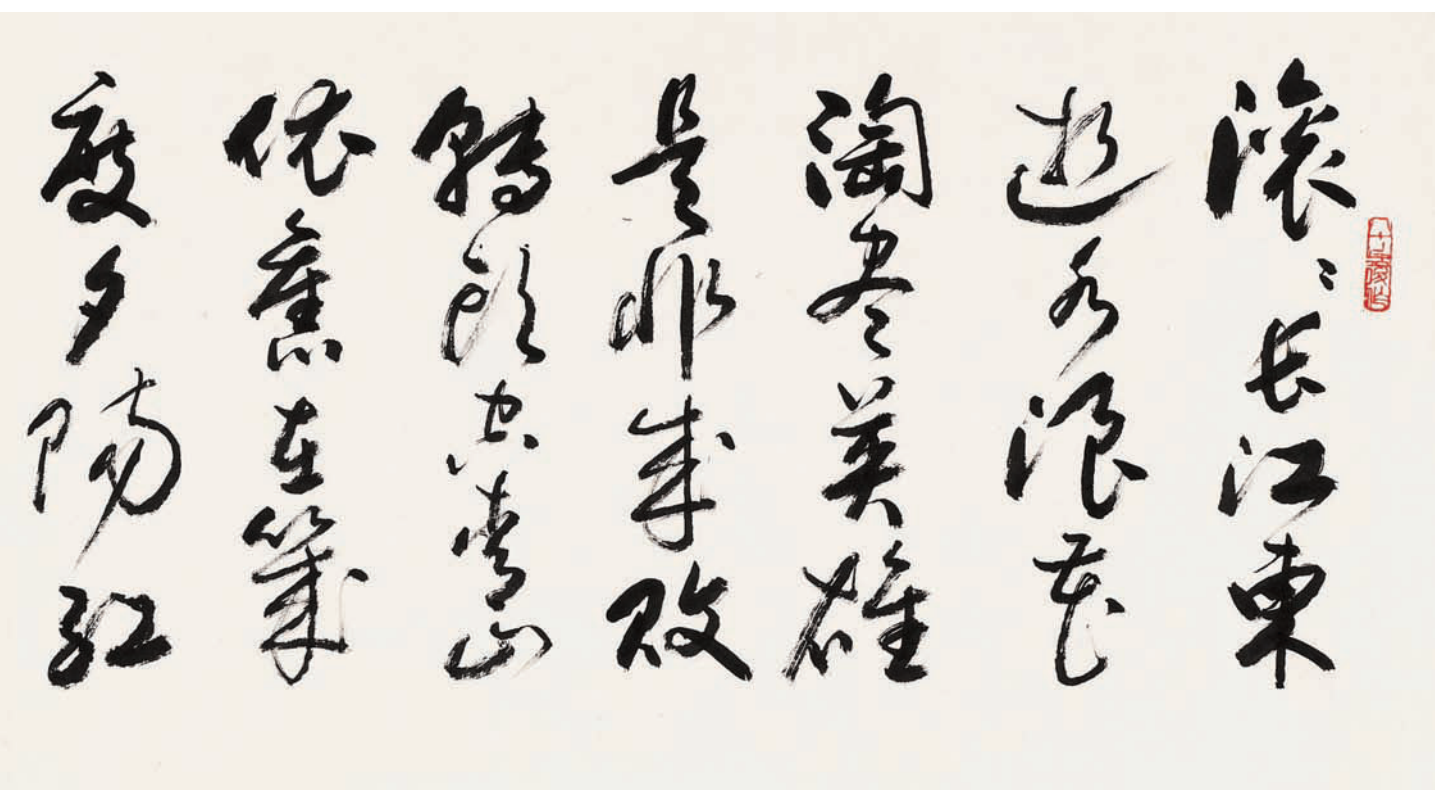 滚〻长江東
逝水浪花
淘尽英雄
是非成敗
轉頭空青山
依舊在幾
度夕陽紅